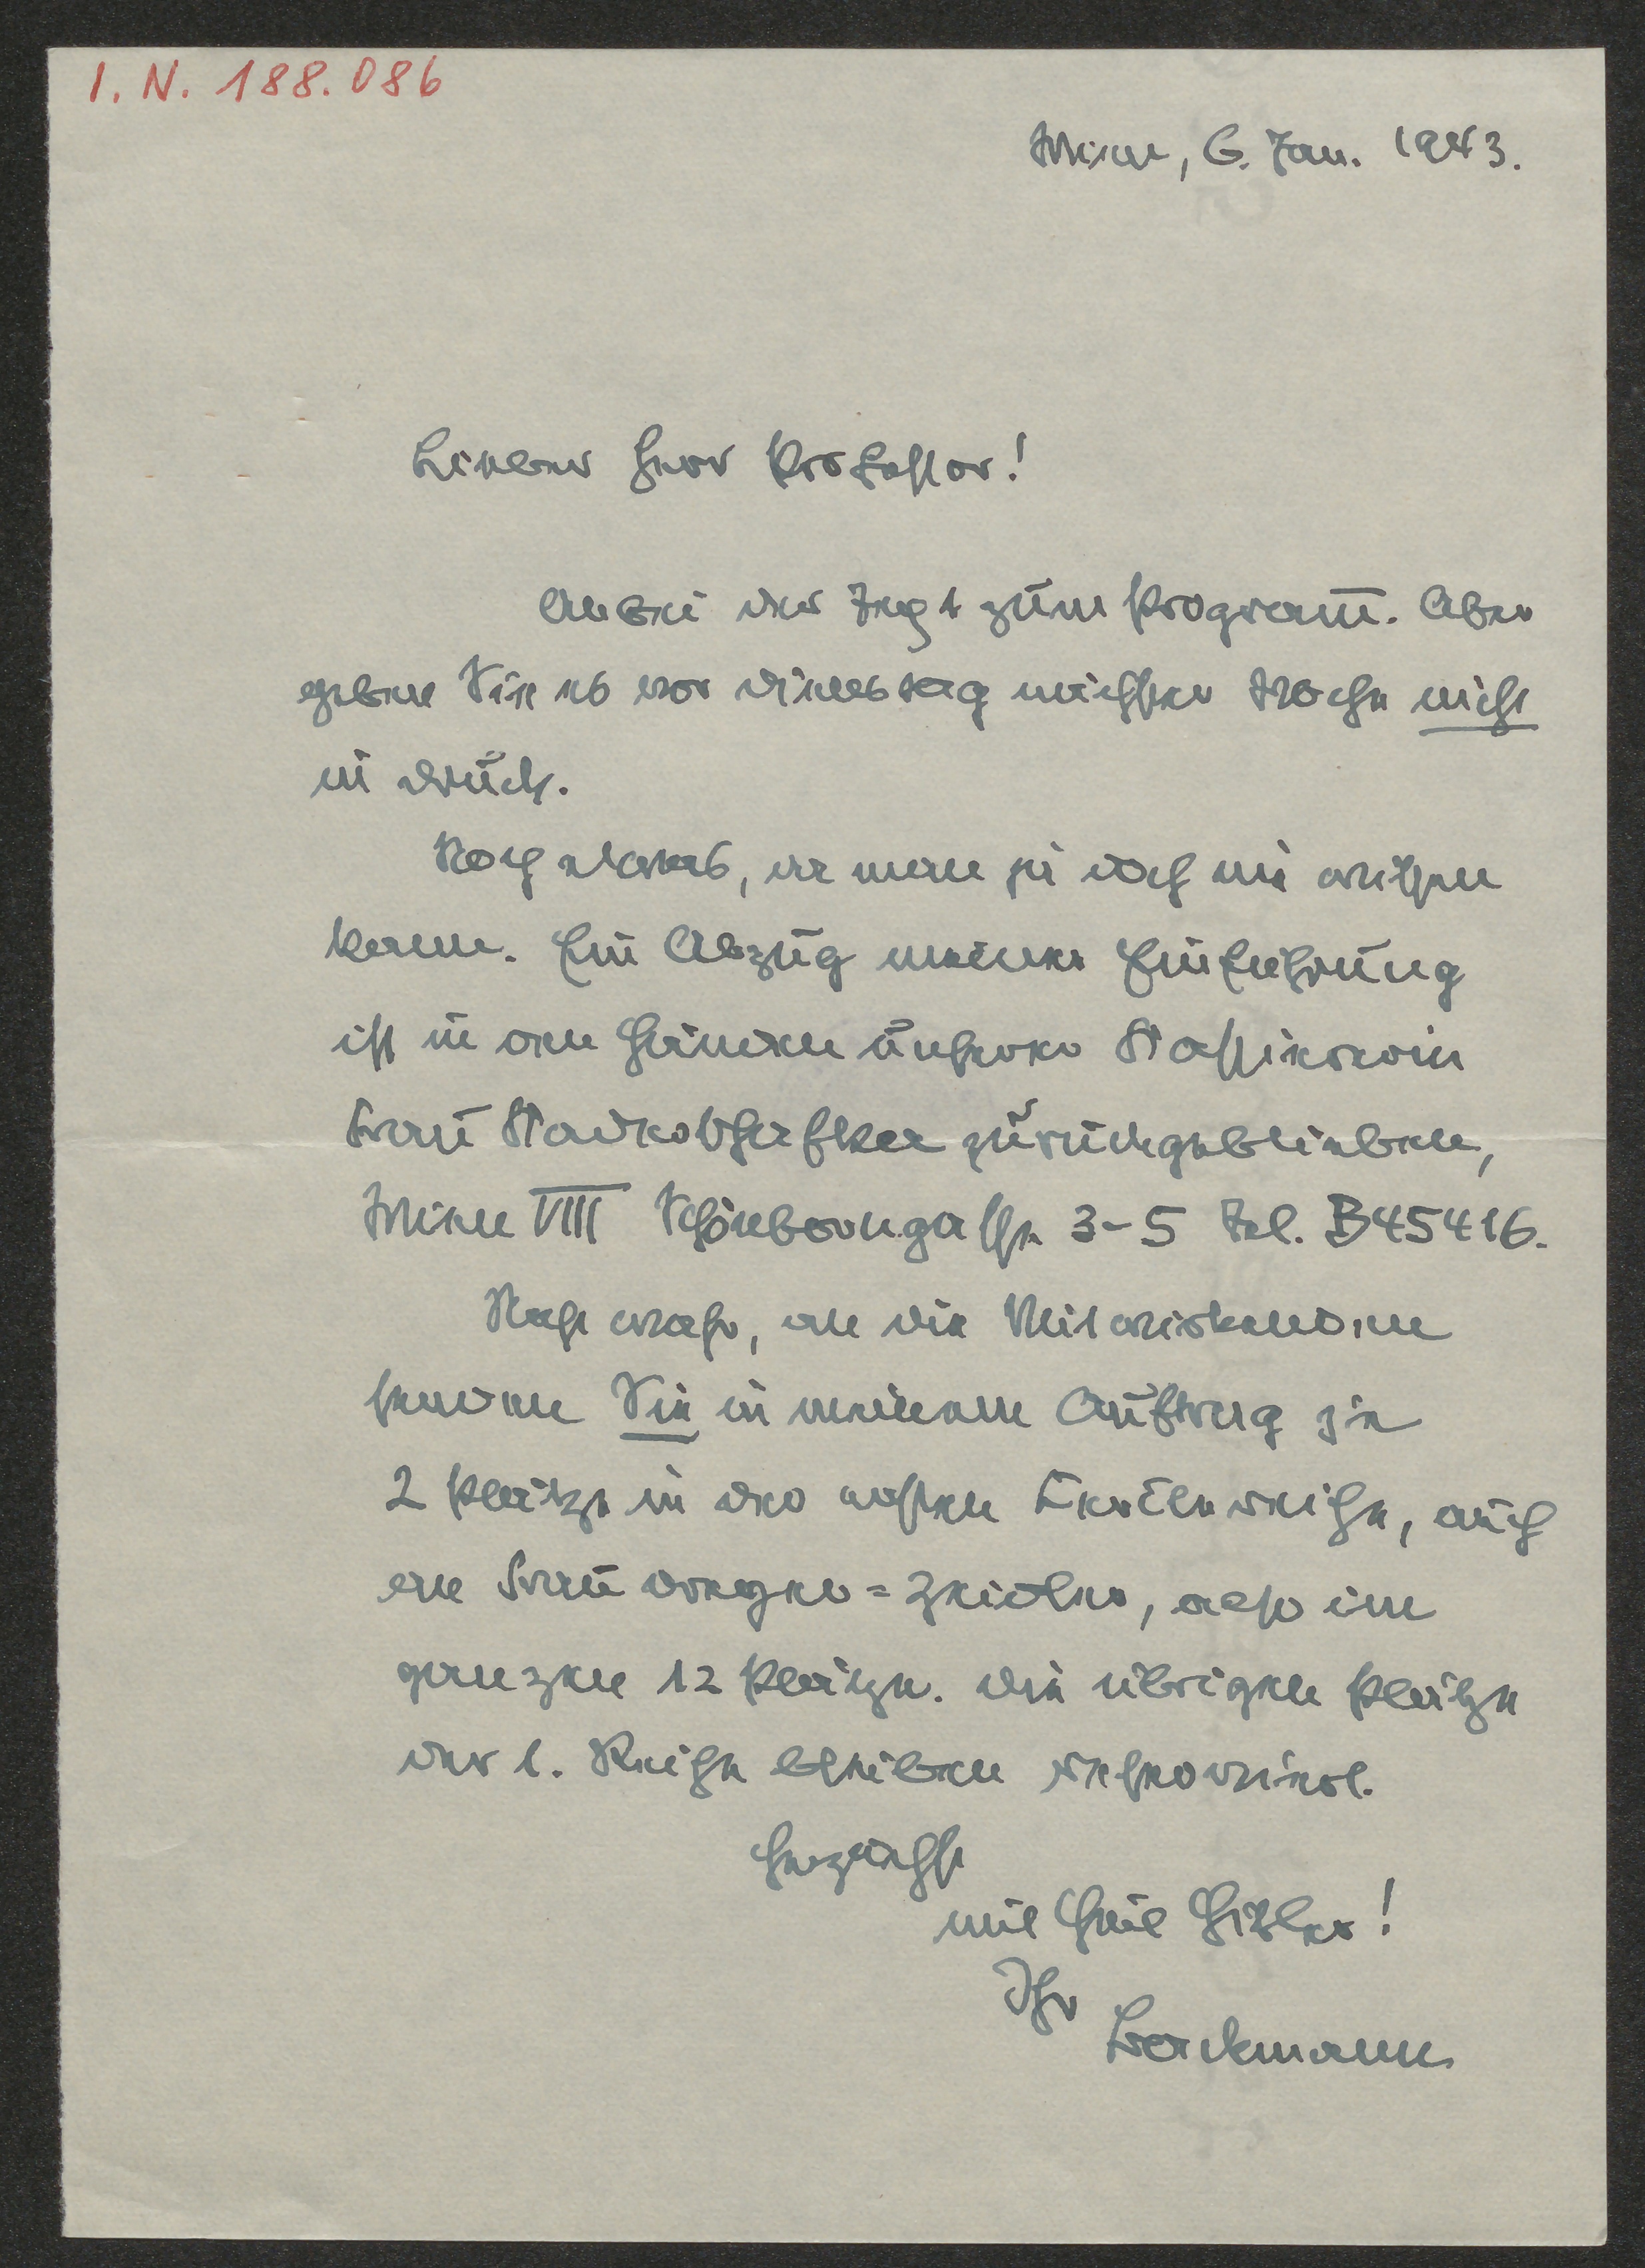 I. N. 188.086
Wien, 6. Jan. 1943.
Lieber Herr Professor!
Anbei der Text zum Programm. Aber
geben Sie es vor Dienstag nächster Woche nicht
in Druck.
Noch etwas, da man ja doch nie wissen
kann. Ein Abzug meiner Einführung
ist in den Händen unserer Kassierin
Frau zurückgeblieben,
Wien VIII Schönborngasse 3-5 Tel. B45416.
Nicht wahr, an die Mitwirkenden
senden Sie in meinem Auftrag je
2 Plätze in der ersten Fauteuilreihe, auch
an Frau Dreger-Zeidler, also im
ganzen 12 Plätze. Die übrigen Plätze
der 1. Reihe bleiben reserviert.
Herzlichst
mit Heil Hitler!
Ihr
Lorckmann